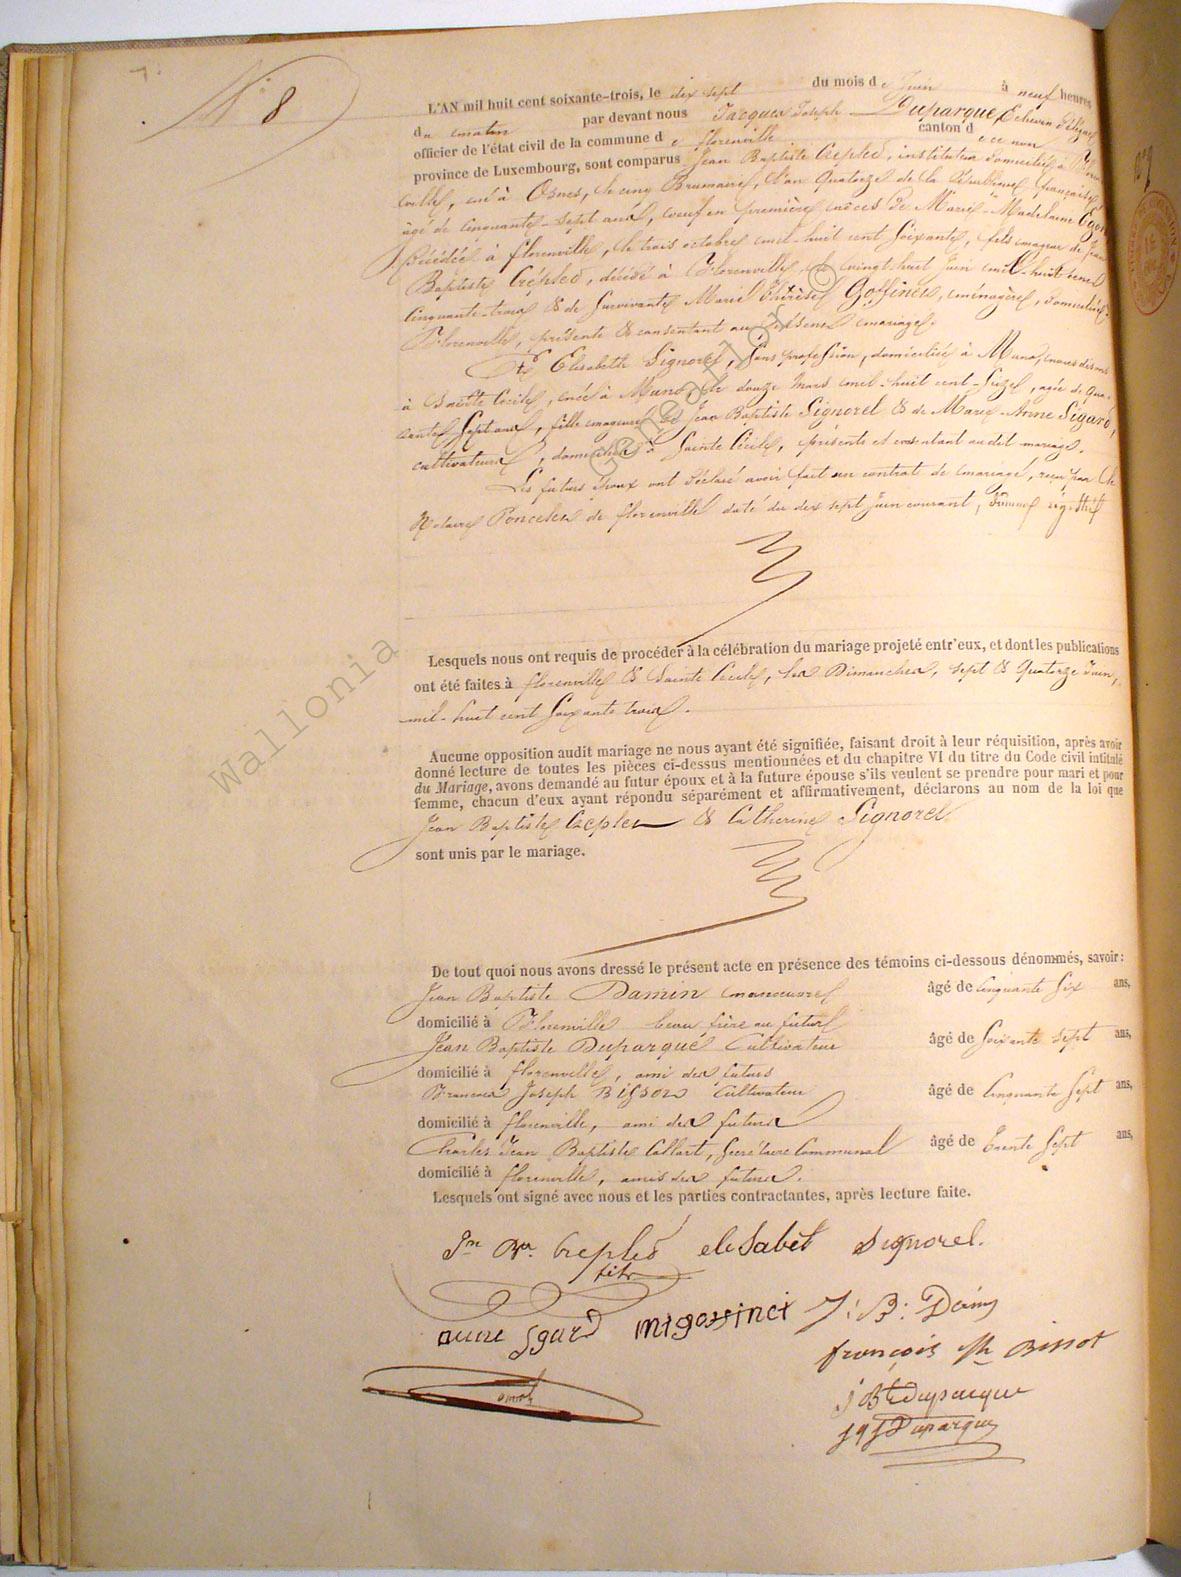 N° 8
L'AN mil huit cent soixante-trois, le dix sept du mois de Juin à neuf heures
du matin par devant nous Jacques Joseph Duparque, Echevin délégué
officier de l'état civil de la commune de florenville canton de ce nom
province de Luxembourg, sont comparus Jean Baptiste Créplet, instituteur domicilié à Floren
ville, né à Osnes, le cinq Brumaire, l'an Quatorze de la République française,
âgé de cinquante-sept ans, veuf en première noces de Marie-Madelaine
Décédée à florenville, le trois octobre mil-huit cent Soixante, fils majeur de Jean
Baptiste Créplet, décédé à Florenville, le vingt-huit Juin mil-huit cent
Cinquante-trois & de Survivante Marie Thérèse Goffinet, ménagère, domiciliée
Florenville, présente & consentant au présent mariage.
Et Elisabeth Signorel, Sans profession, domiciliée à Muno,
à Sainte Cécile, née à Muno le douze Mars mil-huit cent-Seize, agée de qua-
rante Sept ans, fille majeure de Jean Baptiste Signorel & de Marie Anne Sigard,
cultivateurs, domiciliés à Sainte Cécile, présents et consentant audit mariage.
Les futurs époux ont déclaré avoir fait un contrat de mariage, reçu par le
Notaire Poncelet de florenville daté du dix sept Juin courant,
Lesquels nous ont requis de procéder à la célébration du mariage projeté entr'eux, et dont les publications
ont été faites à florenville & Sainte Cécile, les Dimanches, sept & Quatorze Juin,
mil-huit cent Soixante trois.
Aucune opposition audit mariage ne nous ayant été signifiée, faisant droit à leur réquisition, après avoir
donné lecture de toutes les pièces ci-dessus mentionnées et du chapitre VI du titre du Code civil intitulé
du Mariage, avons demandé au futur époux et à la future épouse s'ils veulent se prendre pour mari et pour
femme, chacun d'eux ayant répondu séparément et affirmativement, déclarons au nom de la loi que
Jean Baptiste Créplet & Catherine Signorel
sont unis par le mariage.
De tout quoi nous avons dressé le présent acte en présence des témoins ci-dessous dénommés, savoir:
Jean Baptiste Damin manoeuvre âgé de Cinquante Six ans,
domicilié à Florenville beau frère au futur
Jean Baptiste Duparque Cultivateur âgé de Soixante sept ans,
domicilié à florenville, ami des futurs
Francois Joseph Bisson Cultivateur âgé de Cinquante Sept ans,
domicilié à florenville, ami des futurs
Charles Jean Baptiste Collart, Secrétaire Communal âgé de trente Sept ans,
domicilié à florenville, amis des futurs.
Lesquels ont signé avec nous et les parties contractantes, après lecture faite.
Jn Bte Creplé elisabet Signorel.
anne Sgard mtgoffinet J: B: Damin
françois Jh Bissot
J Bte Duparque
JqJ Duparque
Geneafor ©
Wallonia